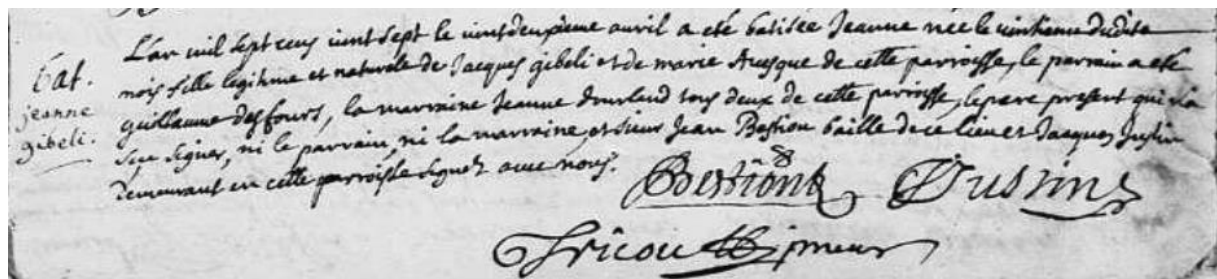 bat.
jeanne
gibeli.
L'an mil sept cens vint sept le vint deuxieme avril a eté batisée Jeanne née le vintieme dudit
mois fille legitime et naturele de Jacques gibeli et de marie Auesque de cette parroisse, le parrain a eté
guillaume desfours, la marraine Jeanne dourland tous deux de cette parroisse, le pere present qui n'a
sçeu signer, ni le parrain, ni la marraine, et sieurs Jean Bastion baille de ce lieu et Jacques Justin
demeurant en cette parroisse signez avec nous.
Justin
Tricou